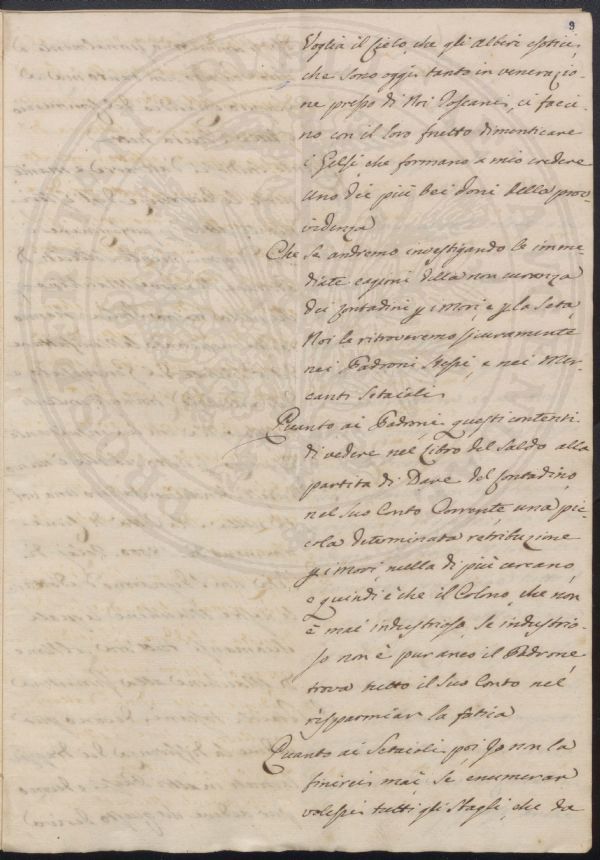 9
Voglia il Cielo, che gli Alberi esotici,
che sono oggi tanto in venerazio-
ne presso di Noi Toscani, ci facci-
no con il loro frutto dimenticare
i Gelsi, che formano a mio credere
uno dei più bei doni della prov-
videnza
Che se andremo investigando le imme-
diate cagioni della non curanza
dei Contadini p i Mori, e p la Seta,
Noi le ritroveremo sicuramente
nei Padroni stessi, e nei Mer-
canti Setaioli
Quanto ai Padroni, questi contenti
di vedere nel Libro del Saldo alla
partita di Dare del Contadino,
nel suo Conto Corrente, una pic-
cola determinata retribuzione
p i Mori, nulla di più cercano,
e quindi è che il Colono, che non
è mai industrioso, se industrio-
so non è pur anco il Padrone,
trova tutto il suo Conto nel
risparmiar la fatica
Quanto ai Setaioli poi Io non la
finirei mai, se enumerar
volessi tutti gli sbagli, che da